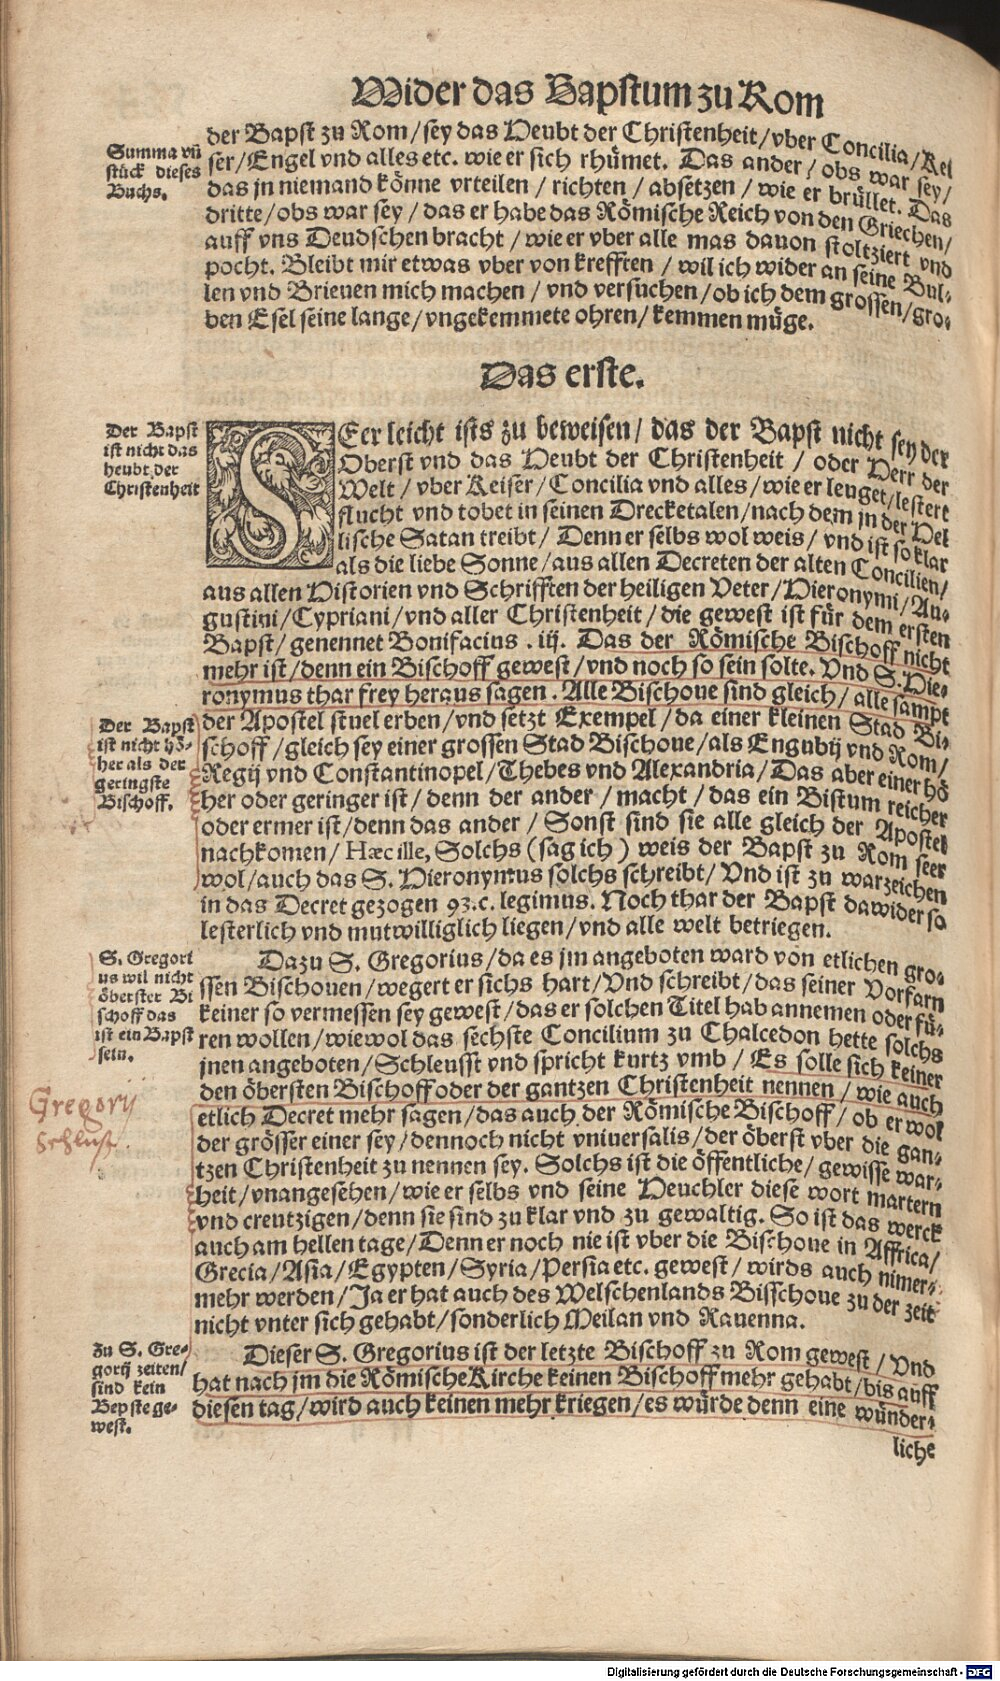 Wider das Bapstum zu Rom
der Bapst zu Rom/sey das Heubt der Christenheit/vber Concilia/Kei
ser/Engel vnd alles etc. wie er sich rhümet. Das ander/obs war sey/
das jn niemand könne vrteilen/richten/absetzen/wie er brüllet. Das
dritte/obs war sey/das er habe das Römische Reich von den Griechen/
auff vns Deudschen bracht/wie er vber alle mas dauon stoltziert vnd
pocht. Bleibt mir etwas vber von krefften/wil ich wider an seine Bul⸗
len vnd Brieuen mich machen/vnd versuchen/ob ich dem grossen/gro⸗
ben Esel seine lange/vngekemmete ohren/kemmen müge.
Summa vñ
stück dieses
Buchs.
Das erste.
SEer leicht ists zu beweisen/das der Bapst nicht sey der
Oberst vnd das Heubt der Christenheit/oder Herr der
Welt/vber Keiser/Concilia vnd alles/wie er leuget/lestert
flucht vnd tobet in seinen Drecketalen/nach dem jn der Hel
lische Satan treibt/Denn er selbs wol weis/vnd ist so klar
als die liebe Sonne/aus allen Decreten der alten Concilien/
aus allen Historien vnd Schrifften der heiligen Veter/Hieronymi/Au⸗
gustini/Cypriani/vnd aller Christenheit/die gewest ist für dem ersten
Bapst/genennet Bonifacius. iij. Das der Römische Bischoff nicht
mehr ist/denn ein Bischoff gewest/vnd noch so sein solte. Vnd S. Hie⸗
ronymus thar frey heraus sagen. Alle Bischoue sind gleich/alle sampt
der Apostel stuel erben/vnd setzt Exempel/da einer kleinen Stad Bi⸗
schoff/gleich sey einer grossen Stad Bischoue/als Engubij vnd Rom/
Regij vnd Constantinopel/Thebes vnd Alexandria/Das aber einer hö
her oder geringer ist/denn der ander/macht/das ein Bistum reicher
oder ermer ist/denn das ander/Sonst sind sie alle gleich der Apostel
nachkomen/Hæc ille, Solchs (sag ich) weis der Bapst zu Rom seer
wol/auch das S. Hieronymus solchs schreibt/Vnd ist zu warzeichen
in das Decret gezogen 93.c. legimus. Noch thar der Bapst dawider so
lesterlich vnd mutwilliglich liegen/vnd alle welt betriegen.
Der Bapst
ist nicht das
heubt der
Christenheit
Der Bapst
ist nicht hö⸗
her als der
geringste
Bischoff.
Dazu S. Gregorius/da es jm angeboten ward von etlichen gro⸗
ssen Bischouen/wegert er sichs hart/Vnd schreibt/das seiner Vorfarn
keiner so vermessen sey gewest/das er solchen Titel hab annemen oder fü⸗
ren wollen/wiewol das sechste Concilium zu Chalcedon hette solchs
jnen angeboten/Schleusst vnd spricht kurtz vmb/Es solle sich keiner
den öbersten Bischoff oder der gantzen Christenheit nennen/wie auch
etlich Decret mehr sagen/das auch der Römische Bischoff/ob er wol
der grösser einer sey/dennoch nicht vniuersalis/der öberst vber die gan⸗
tzen Christenheit zu nennen sey. Solchs ist die öffentliche/gewisse war⸗
heit/vnangesehen/wie er selbs vnd seine Heuchler diese wort martern
vnd creutzigen/denn sie sind zu klar vnd zu gewaltig. So ist das werck
auch am hellen tage/Denn er noch nie ist vber die Bischoue in Affrica/
Grecia/Asia/Egypten/Syria/Persia etc. gewest/wirds auch nimer⸗
mehr werden/Ja er hat auch des Welschenlands Bisschoue zu der zeit
nicht vnter sich gehabt/sonderlich Meilan vnd Rauenna.
S. Gregori
us wil nicht
öberster Bi
schoff das
ist ein Bapst
sein.
Gregorij
Schluß.
Dieser S. Gregorius ist der letzte Bischoff zu Rom gewest/Vnd
hat nach jm die Römische Kirche keinen Bischoff mehr gehabt/bis auff
diesen tag/wird auch keinen mehr kriegen/es würde denn eine wünder⸗
liche
Zu S. Gre⸗
gorij zeiten/
sind kein
Bepste ge⸗
west.
Digitalisierung gefördert durch die Deutsche Forschungsgemeinschaft - DFG